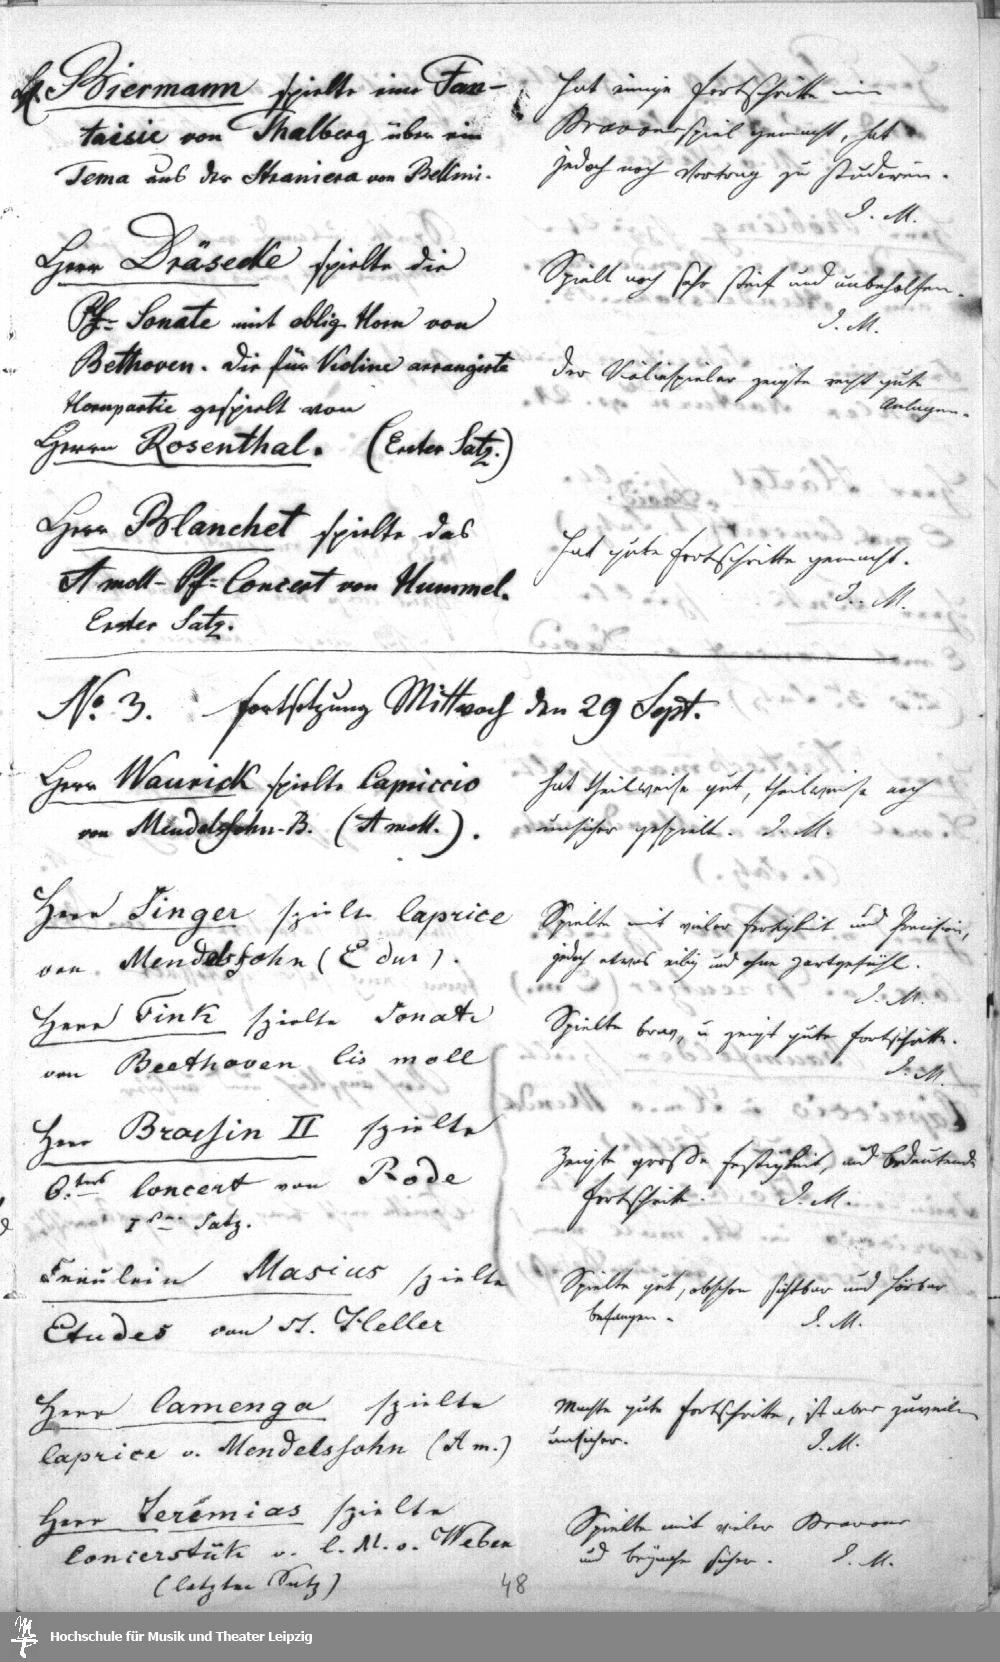 Hr. Biermann spielte eine Fan-
taisie von Thalberg über ein
Tema aus der Straniera von Bellini.
Hat einige Fortschritte im
Bravourspiel gemacht, hat
jedoch noch Vortrag zu studiren.
I. M.
Herr Dräseke spielte die
Pf- Sonate mit oblig. Horn von
Bethoven. Die für Violine arrangirte
Hornpartie gespielt von
Herrn Rosenthal. (Erster Satz.)
Spielt noch sehr steif und unbeholfen.
I. M.
Der Violinspieler zeigte recht gute
Anlagen.
Herr Blanchet spielte das
A moll- Pf- Concert von Hummel.
Erster Satz.
Hat gute Fortschritte gemacht.
I. M.
No. 3. Fortsetzung Mittwoch den 29 Sept.
Herr Waurick spielte Capriccio
von Mendelssohn-B. (A moll.).
Hat theilweise gut, theilweise noch
unsicher gespielt. I. M.
Herr Singer spielte Caprice
von Mendelssohn (E dur).
Spielte mit vieler Fertigkeit und Precision,
jedoch etwas eilig und ohne Zartgefühl.
I. M.
Herr Fink spielte Sonate
von Beethoven Cis moll
Spielte brav, u zeigt gute Fortschritte.
I. M.
Herr Brassin II spielte
6. Concert von Rode
1 Satz.
Zeigte große Festigkeit, und bedeutende
Fortschritte. I. M.
Fräulein Masius spielte
Etudes von St. Heller
Spielte gut, obschon sichtbar und hörbar
befangen. I. M.
Herr Camenga spielte
Caprice v. Mendelssohn (A m.)
Machte gute Fortschritte, ist aber zuweilen
unsicher. I. M.
Herr Jeremias spielte
Concerstük v. C. M. v. Weber
(letzter Satz)
Spielte mit vieler Bravour
und beynahe sicher. I. M.
48
Hochschule für Musik und Theater Leipzig